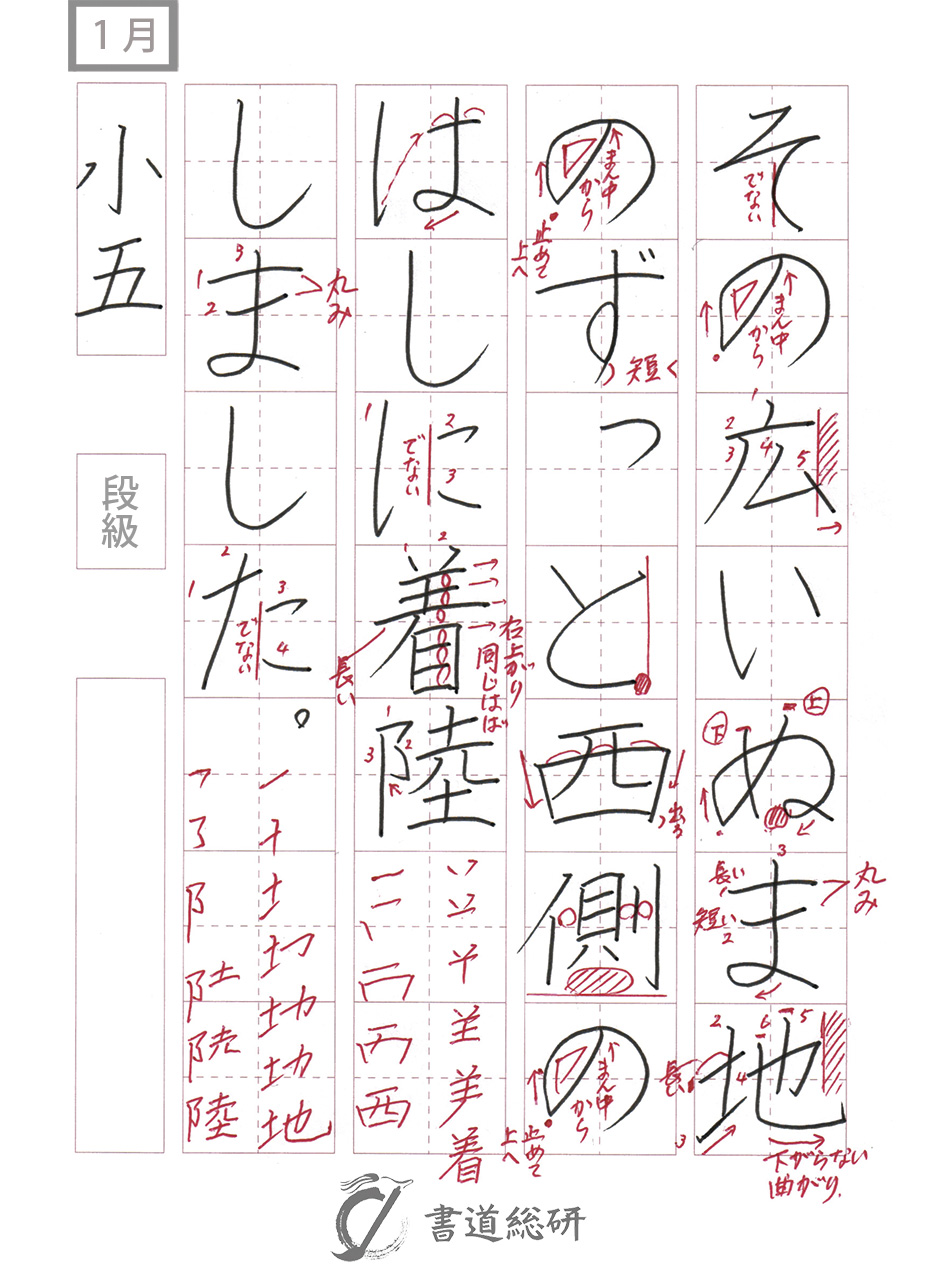 1月
その広いぬま地
でない
まん中から
上
下
長い
短い
丸み
長い
下がらない
曲がり.
のずっと西側の
まん中から
止めて
上へ
短く
出る
まん中から
止めて
上へ
はしに着陸
でない
長い
右上がり
同じはば
着
西
しました。
丸み
でない
地
陸
小五
段級
書道総研